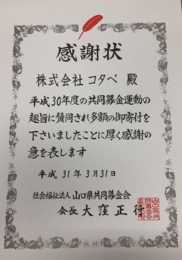 感謝状
株式会社 コタベ 殿
平成30年度の共同募金運動の
趣旨に賛同され多額の御寄付を
下さいましたことに厚く感謝の
意を表します
平成 31年 3月31日
社会福祉法人 山口県共同募金会
会長 大窪正行